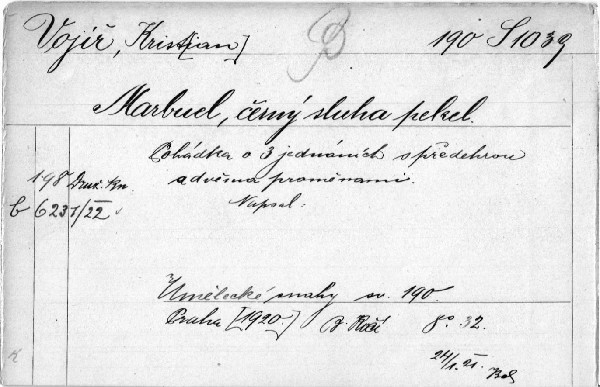 Vojíř, Krist[ian]
B
190 S 1039
Marbuel, černý sluha pekel.
Pohádka o 3 jednáních s předehrou
a dvěma proměnami.
Napsal:
198 Druž. kn.
b 6231/22
Umělecké snahy sv. 190.
Praha [1920.] B. Kočí 8° 32.
24/1. 21.